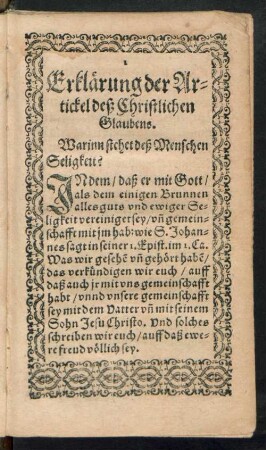 1
Erklärung der Ar-
tickel deß Christlichen
Glaubens.
Warinn stehet deß Menschen
Seligkeit?
INdem/ daß er mit Gott/
als dem einigen Brunnen
alles guts vnd ewiger Se-
ligkeit vereiniget sey/ vñ gemein-
schafft mit jm hab: wie S. Johan-
nes sagt in seiner 1. Epist. im 1. Ca.
Was wir gesehē vñ gehört habē/
das verkündigen wir euch/ auff
daß auch jr mit vns gemeinschafft
habt/ vnnd vnsere gemeinschafft
sey mit dem Vatter vñ mit seinem
Sohn Jesu Christo. Vnd solches
schreiben wir euch/ auff daß ewe-
re freud völlich sey.